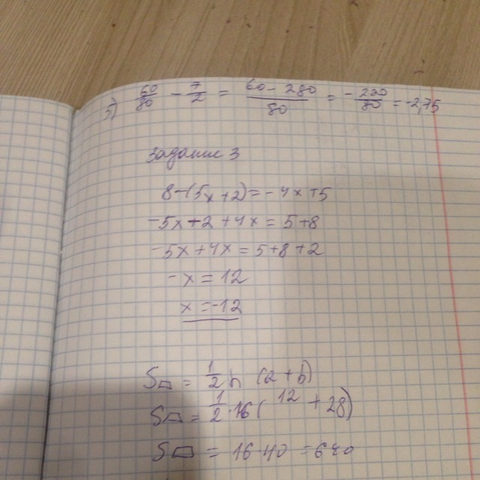 5) 60/80 - 7/2 = 60-280/80 = -220/80 = -2,75
Задание 3
8-(5x+2)=-4x+5
-5x+2+4x=5+8
-5x+4x=5+8+2
-x=12
x=-12
S▱ = 1/2 h (a+b)
S▱ = 1/2·16(12+28)
S▱ = 16·40=640